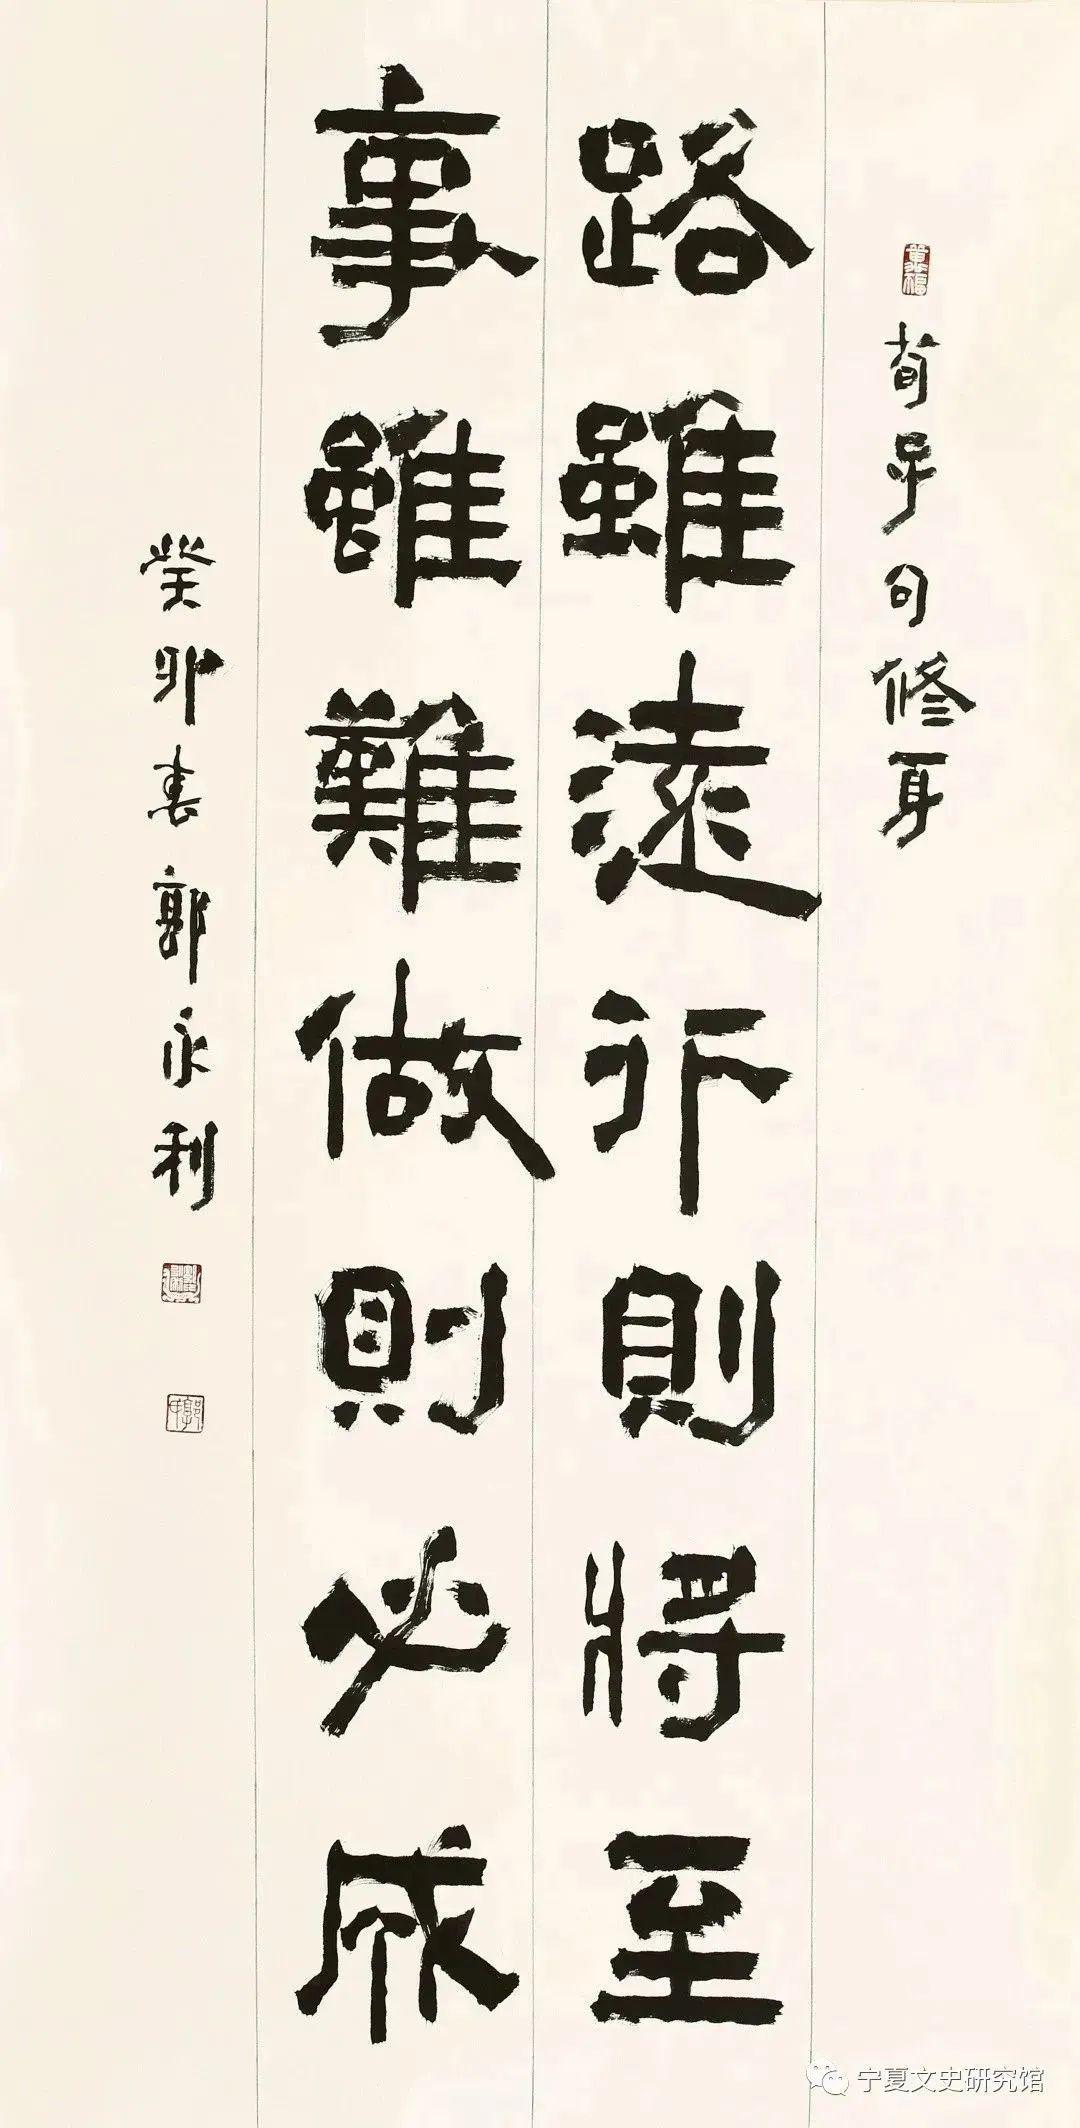 荀子句修身
路雖遠行則將至
事雖難做則必成
癸卯春郭永利
宁夏文史研究馆